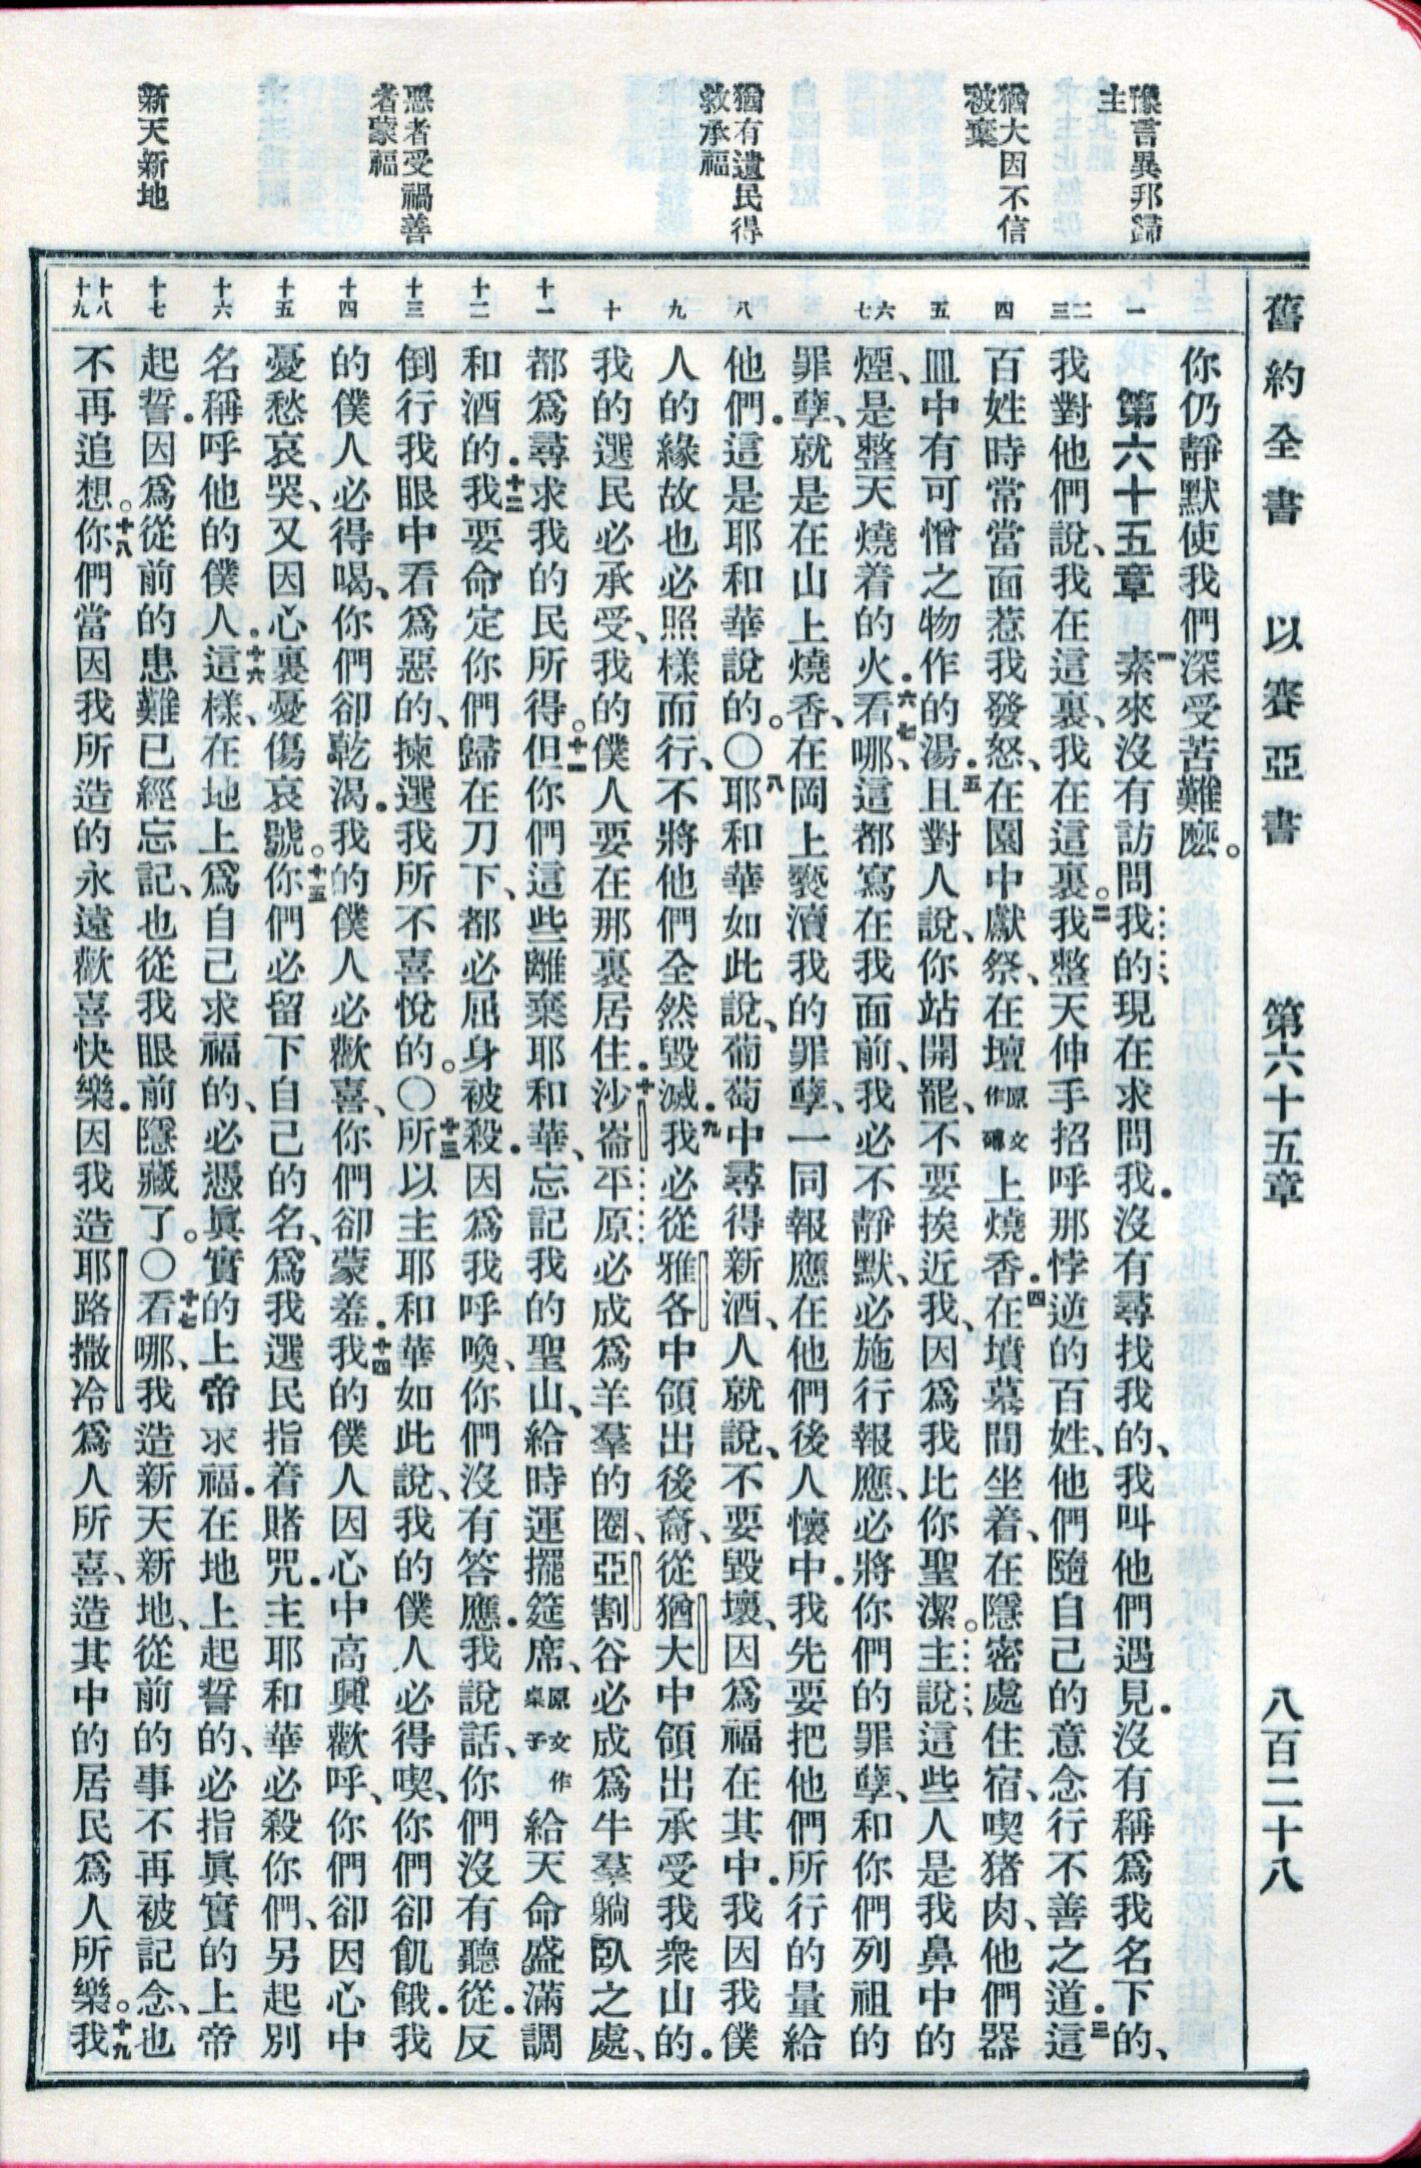 舊約全書　以賽亞書　第六十五章　八百二十八
豫言異邦歸
主
猶大因不信
被棄
猶有遺民得
救承福
惡者受禍善
者蒙福
新天新地
一
二
三
四
五
六
七
八
九
十
十一
十二
十三
十四
十五
十六
十七
十八
十九
你仍靜默使我們深受苦難麼。
第六十五章　一素來沒有訪問我的、現在求問我．沒有尋找我的、我叫他們遇見．沒有稱爲我名下的、
我對他們說、我在這裏、我在這裏。二我整天伸手招呼那悖逆的百姓、他們隨自己的意念行不善之道．三這
百姓時常當面惹我發怒、在園中獻祭、在壇原文作磚上燒香．四在墳墓間坐着、在隱密處住宿喫猪肉、他們器
皿中有可憎之物作的湯．五且對人說、你站開罷、不要挨近我、因爲我比你聖潔。主說這些人是我鼻中的
煙、是整天燒着的火．六看哪、七這都寫在我面前、我必不靜默、必施行報應、必將你們的罪孽、和你們列祖的
罪孽、就是在山上燒香、在岡上褻瀆我的罪孽、一同報應在他們後人懷中．我先要把他們所行的量給
他們．這是耶和華說的。〇八耶和華如此說、葡萄中尋得新酒、人就說、不要毀壞、因爲福在其中．我因我僕
人的緣故也必照樣而行、不將他們全然毀滅．九我必從雅各中領出後裔、從猶大中領出承受我衆山的．
我的選民必承受、我的僕人要在那裏居住．十沙崙平原必成爲羊羣的圈、亞割谷必成爲牛羣躺臥之處、
都爲尋求我的民所得。十一但你們這些離棄耶和華、忘記我的聖山、給時運擺筵席、原文作桌子給天命盛滿調
和酒的．十二我要命定你們歸在刀下、都必屈身被殺．因爲我呼喚、你們沒有答應．我說話、你們沒有聽從．反
倒行我眼中看爲惡的、揀選我所不喜悅的。〇十三所以主耶和華如此說、我的僕人必得喫、你們卻飢餓．我
的僕人必得喝、你們卻乾渴．我的僕人必歡喜、你們卻蒙羞．十四我的僕人因心中高興歡呼、你們卻因心中
憂愁哀哭、又因心裏憂傷哀號。十五你們必留下自己的名、爲我選民指着賭咒．主耶和華必殺你們、另起別
名稱呼他的僕人．十六這樣、在地上爲自己求福的、必憑眞實的上帝求福．在地上起誓的、必指眞實的上帝
起誓．因爲從前的患難已經忘記、也從我眼前隱藏了。〇十七看哪、我造新天新地、從前的事不再被記念、也
不再追想。十八你們當因我所造的永遠歡喜快樂．因我造耶路撒冷爲人所喜、造其中的居民爲人所樂。十九我